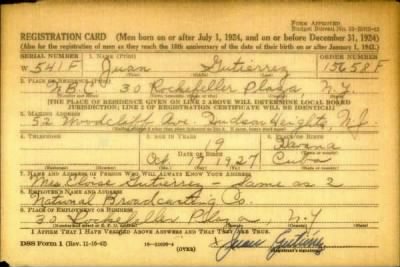 Form Approved
REGISTRATION CARD (Men born on or after July 1, 1924, and on or before December 31, 1924)
(Also for the registration of men as they reach the 18th anniversary of the date of their birth on or after January 1, 1943.)
SERIAL NUMBER 1. NAME (Print) ORDER NUMBER
W 541 F Juan Gutierrez 15658 F
2. PLACE OF RESIDENCE (Print)
N.B.C. 30 Rockefeller Plaza, N.Y.
[THE PLACE OF RESIDENCE GIVEN ON LINE 2 ABOVE WILL DETERMINE LOCAL BOARD
JURISDICTION; LINE 2 OF REGISTRATION CERTIFICATE WILL BE IDENTICAL]
3. MAILING ADDRESS
52 Woodcliff Ave. Hudson Heights, N.J.
4. TELEPHONE 5. AGE IN YEARS 6. PLACE OF BIRTH
19 Havana
DATE OF BIRTH
Oct 1927 Cuba
7. NAME AND ADDRESS OF PERSON WHO WILL ALWAYS KNOW YOUR ADDRESS
Mrs Gutierrez - Same as 2
8. EMPLOYER'S NAME AND ADDRESS
National Broadcasting Co.
9. PLACE OF EMPLOYMENT OR BUSINESS
30 Rockefeller Plaza, N.Y
I AFFIRM THAT I HAVE VERIFIED ABOVE ANSWERS AND THAT THEY ARE TRUE.
DSS Form 1 (Rev. 11-16-42) (OVER) x Juan Gutierrez